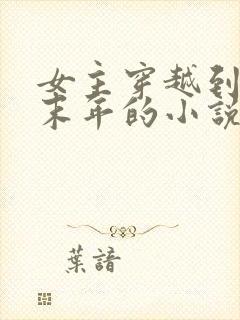 女主穿越到
末年的小說
葉諳